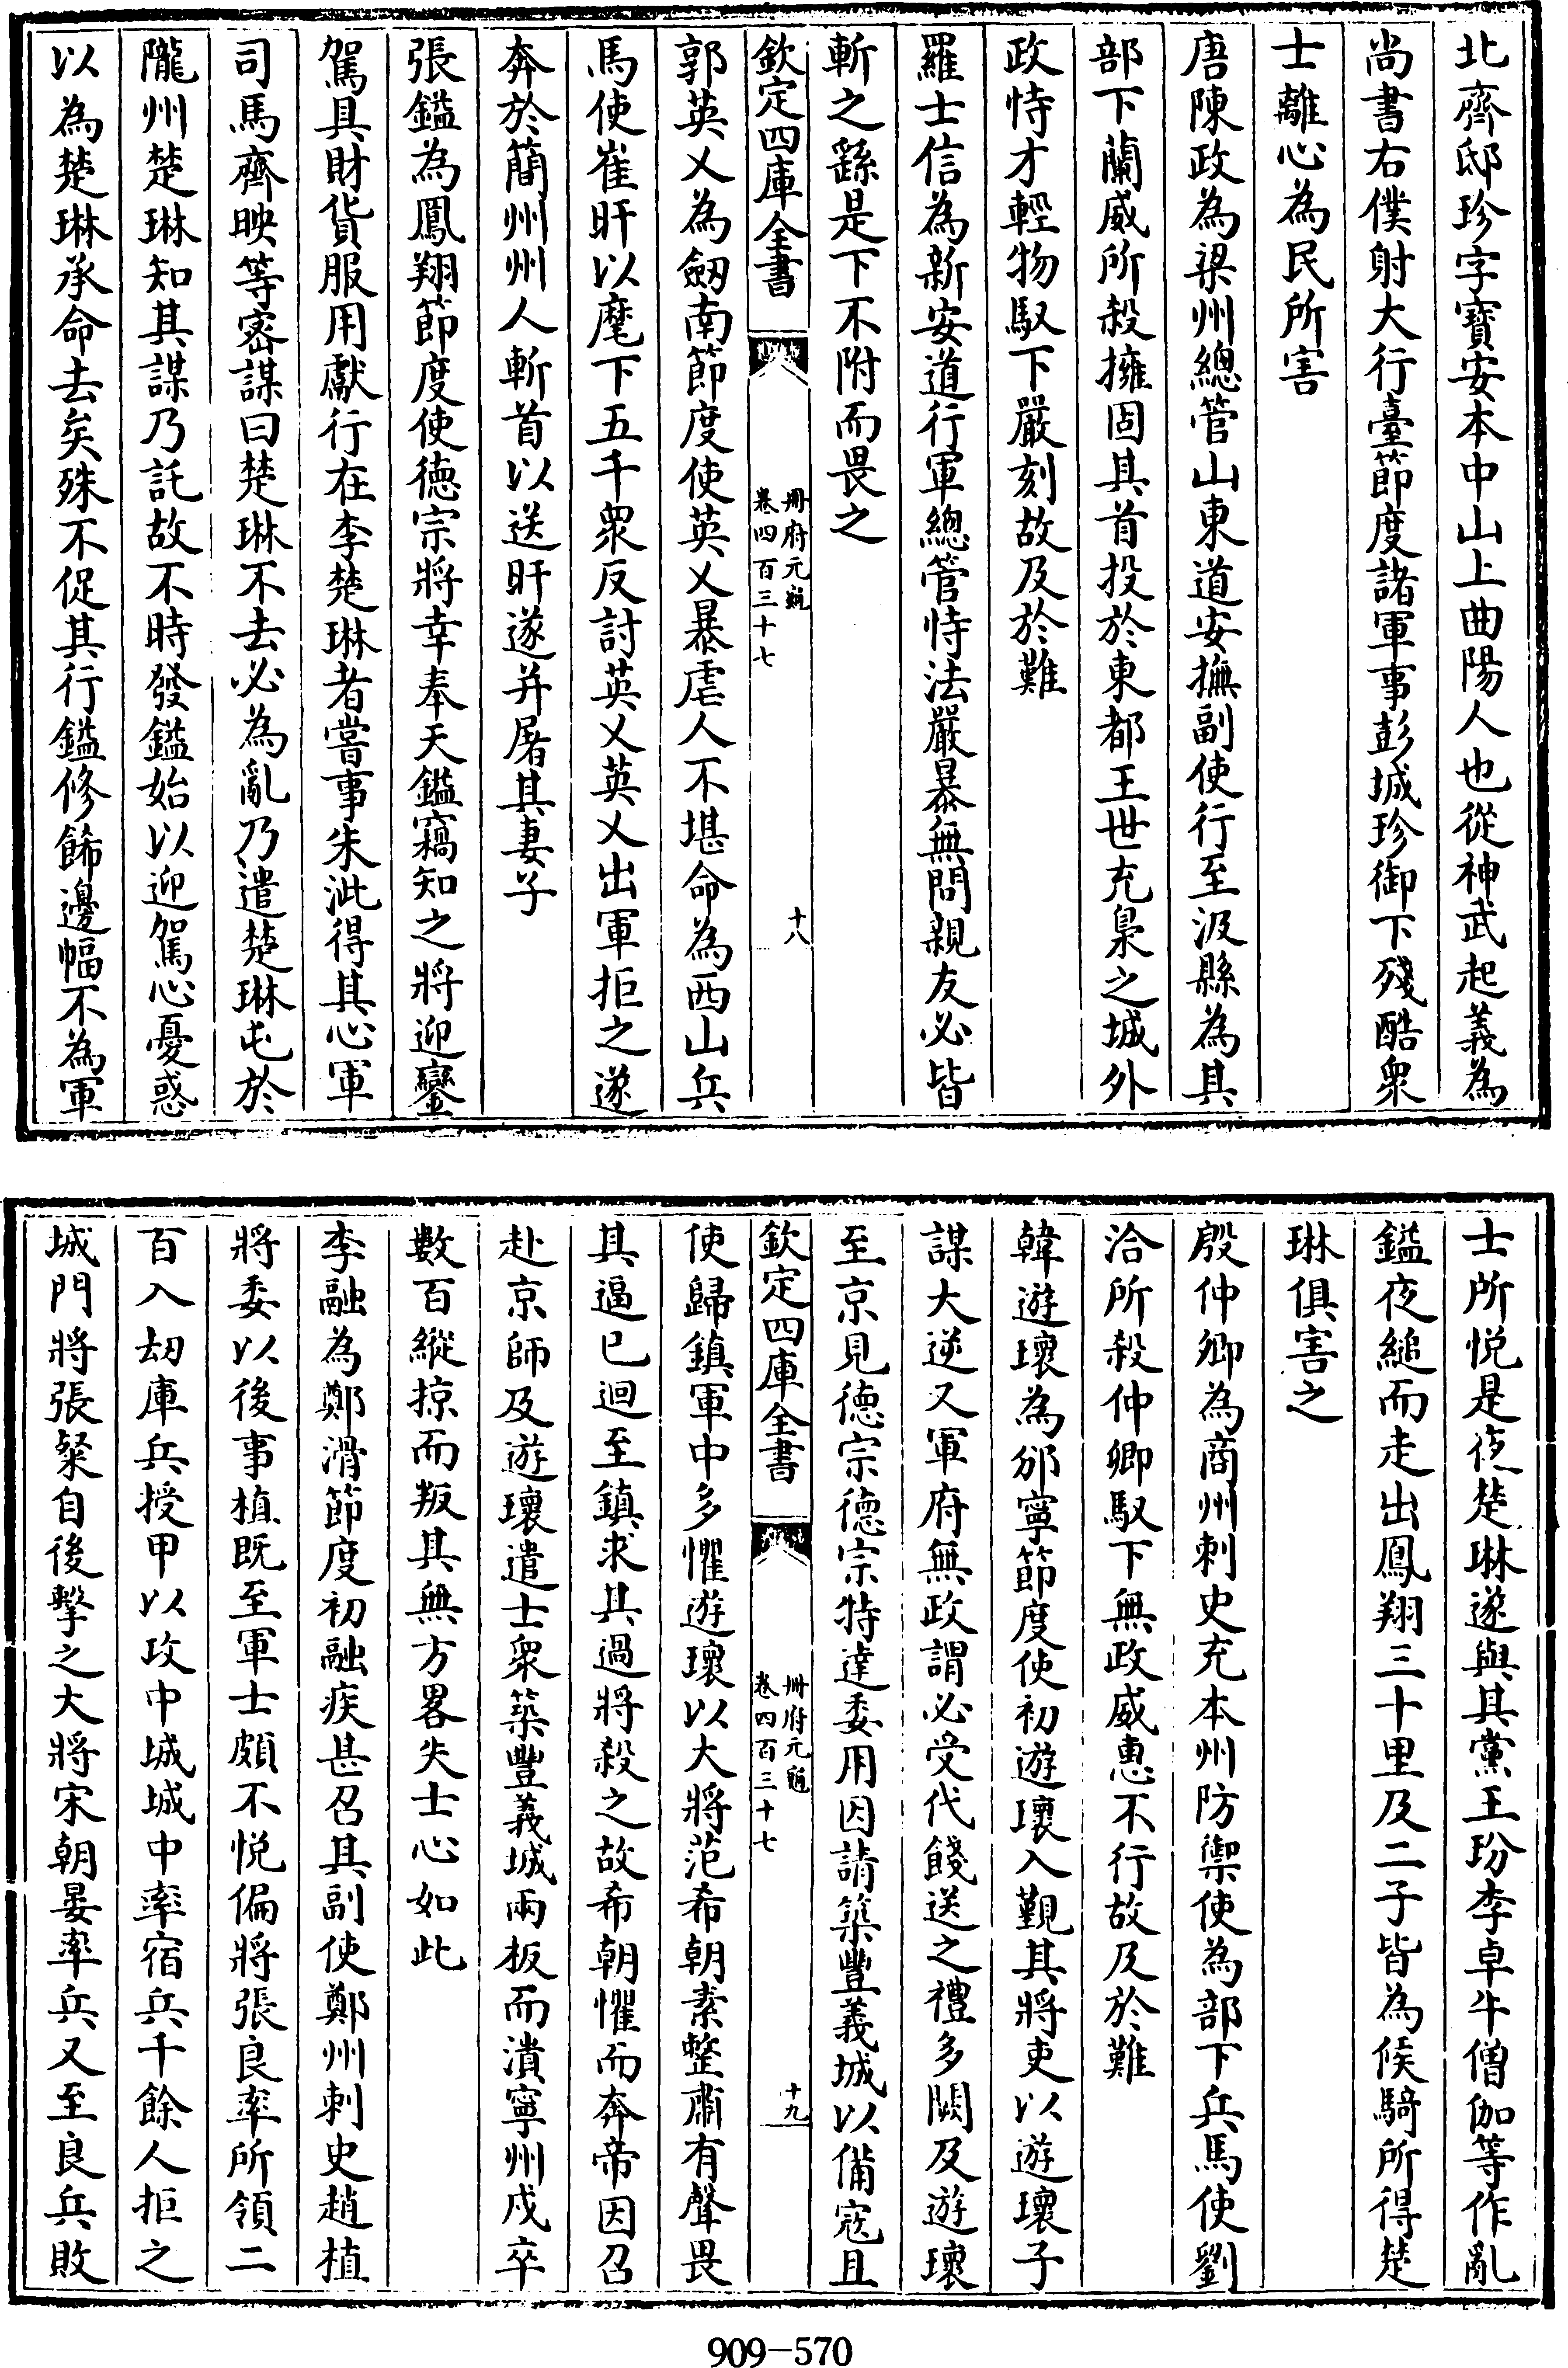 北齊邸珍字寶安本中山上曲陽人也從神武起義為
尚書右僕射大行臺節度諸軍事彭城珍御下殘酷衆
士離心為民所害
唐陳政為梁州總管山東道安撫副使行至汲縣為其
部下蘭威所殺擁固其首投於東都王世充梟之城外
政恃才輕物馭下嚴刻故及於難
羅士信為新安道行軍總管恃法嚴暴無問親友必皆
斬之繇是下不附而畏之
欽定四庫全書
冊府元龜
卷四百三十七
十八
郭英乂為劒南節度使英乂暴虐人不堪命為西山兵
馬使崔旰以麾下五千衆反討英乂英乂出軍拒之遂
奔於簡州州人斬首以送旰遂并屠其妻子
張鎰為鳳翔節度使德宗將幸奉天鎰竊知之將迎鑾
駕具財貨服用獻行在李楚琳者嘗事朱泚得其心軍
司馬齊映等密謀曰楚琳不去必為亂乃遣楚琳屯於
隴州楚琳知其謀乃託故不時發鎰始以迎駕心憂惑
以為楚琳承命去矣殊不促其行鎰修飾邊幅不為軍
士所悅是夜楚琳遂與其黨王玢李卓牛僧伽等作亂
鎰夜縋而走出鳳翔三十里及二子皆為候騎所得楚
琳俱害之
殷仲卿為商州刺史充本州防禦使為部下兵馬使劉
洽所殺仲卿馭下無政威惠不行故及於難
韓遊瓌為邠寧節度使初遊瓌入覲其將吏以遊瓌子
謀大逆又軍府無政謂必受代餞送之禮多闕及遊瓌
至京見德宗德宗特達委用因請築豐義城以備寇且
欽定四庫全書
冊府元龜
卷四百三十七
十九
使歸鎮軍中多懼遊瓌以大將范希朝素整肅有聲畏
其逼已迴至鎮求其過將殺之故希朝懼而奔帝因召
赴京師及遊瓌遣士衆築豐義城兩板而潰寧州戍卒
數百縱掠而叛其無方畧失士心如此
李融為鄭滑節度初融疾甚召其副使鄭州刺史趙植
將委以後事植既至軍士頗不悅偏將張良率所領二
百入刼庫兵授甲以攻中城城中率宿兵千餘人拒之
城門將張粲自後擊之大將宋朝晏率兵又至良兵敗
909-570